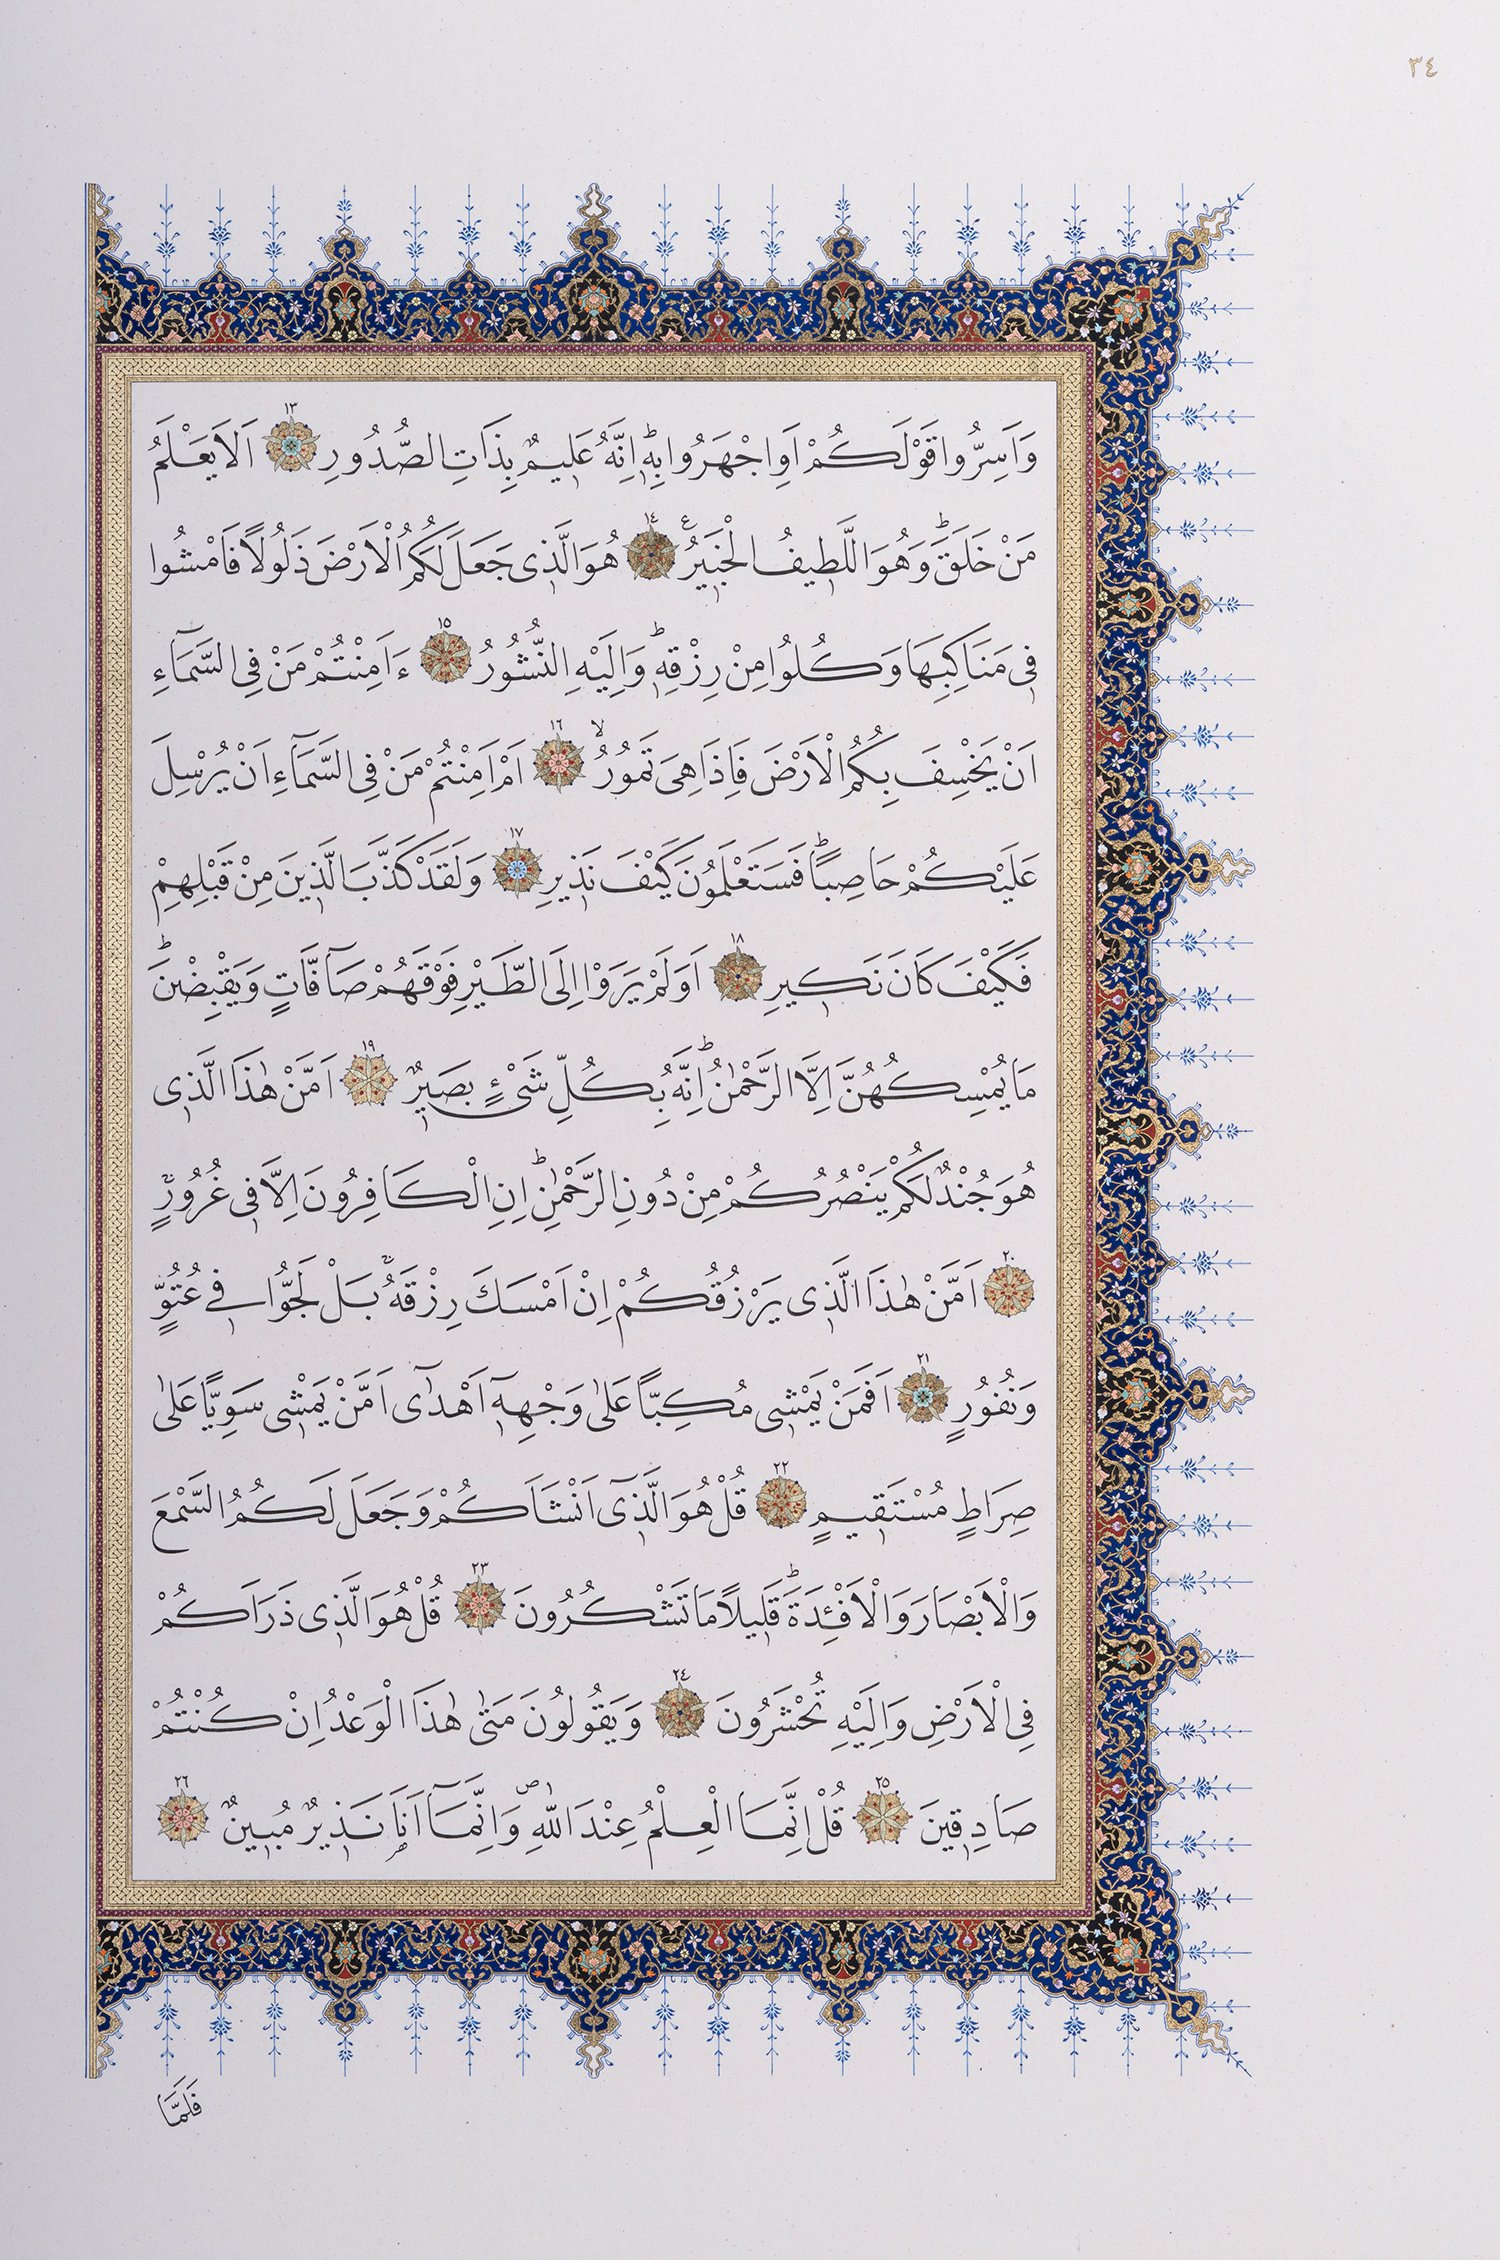 ٣٤
وَاَسِرُّوا قَوْلَكُمْ اَوِ اجْهَرُوا بِهٖؕ اِنَّهُ عَلٖيمٌ بِذَاتِ الصُّدُورِ ١٣ اَلَا يَعْلَمُ
مَنْ خَلَقَؕ وَهُوَ اللَّطٖيفُ الْخَبٖيرُࣖ ١٤ هُوَ الَّذٖى جَعَلَ لَكُمُ الْاَرْضَ ذَلُولًا فَامْشُوا
فٖى مَنَاكِبِهَا وَكُلُوا مِنْ رِزْقِهٖؕ وَاِلَيْهِ النُّشُورُ ١٥ ءَاَمِنْتُمْ مَنْ فِى السَّمَٓاءِ
اَنْ يَخْسِفَ بِكُمُ الْاَرْضَ فَاِذَا هِىَ تَمُورُۙ ١٦ اَمْ اَمِنْتُمْ مَنْ فِى السَّمَٓاءِ اَنْ يُرْسِلَ
عَلَيْكُمْ حَاصِبًاؕ فَسَتَعْلَمُونَ كَيْفَ نَذٖيرِ ١٧ وَلَقَدْ كَذَّبَ الَّذٖينَ مِنْ قَبْلِهِمْ
فَكَيْفَ كَانَ نَكٖيرِ ١٨ اَوَلَمْ يَرَوْا اِلَى الطَّيْرِ فَوْقَهُمْ صَٓافَّاتٍ وَيَقْبِضْنَؕ
مَا يُمْسِكُهُنَّ اِلَّا الرَّحْمٰنُؕ اِنَّهُ بِكُلِّ شَىْءٍ بَصٖيرٌ ١٩ اَمَّنْ هٰذَا الَّذٖى
هُوَ جُنْدٌ لَكُمْ يَنْصُرُكُمْ مِنْ دُونِ الرَّحْمٰنِؕ اِنِ الْكَافِرُونَ اِلَّا فٖى غُرُورٍۚ
٢٠ اَمَّنْ هٰذَا الَّذٖى يَرْزُقُكُمْ اِنْ اَمْسَكَ رِزْقَهُۚ بَلْ لَجُّوا فٖى عُتُوٍّ
وَنُفُورٍ ٢١ اَفَمَنْ يَمْشٖى مُكِبًّا عَلٰى وَجْهِهٖٓ اَهْدٰٓى اَمَّنْ يَمْشٖى سَوِيًّا عَلٰى
صِرَاطٍ مُسْتَقٖيمٍ ٢٢ قُلْ هُوَ الَّذٖٓى اَنْشَاَكُمْ وَجَعَلَ لَكُمُ السَّمْعَ
وَالْاَبْصَارَ وَالْاَفْـِٔدَةَؕ قَلٖيلًا مَا تَشْكُرُونَ ٢٣ قُلْ هُوَ الَّذٖى ذَرَاَكُمْ
فِى الْاَرْضِ وَاِلَيْهِ تُحْشَرُونَ ٢٤ وَيَقُولُونَ مَتٰى هٰذَا الْوَعْدُ اِنْ كُنْتُمْ
صَادِقٖينَ ٢٥ قُلْ اِنَّمَا الْعِلْمُ عِنْدَ اللّٰهِࣕ وَاِنَّمَٓا اَنَا نَذٖيرٌ مُبٖينٌ ٢٦
فَلَمَّا